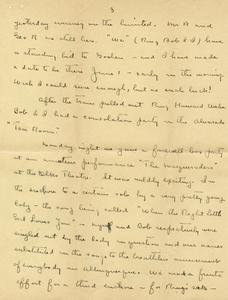 3
yesterday evening on the limited. Mr R and
Geo R is still here. "We" (Ring, Bob & I) have
a standing bid to Goshen - and I have made
a date to be there June 1 - early in the morning.
Wish I could sure enough, but no such luck!
After the train pulled out Ring, Howard Waha
Bob & I had a consolation party in the Alvarado
"Tap Room".
Sunday night we gave a farewell box party
at an amateur performance "The Masqueraders"
at the Theatre. It was mildly exciting. In
the encore to a certain solo by a very pretty young
lady - the song being called "When the Right Little
Girl Loves You" - and Bob respectively were
singled out by the lady in question and our names
substituted in the song to the breathless amusement
of everybody in Albuquerque. We made a frantic
effort for a third encore - for Ring's sake -